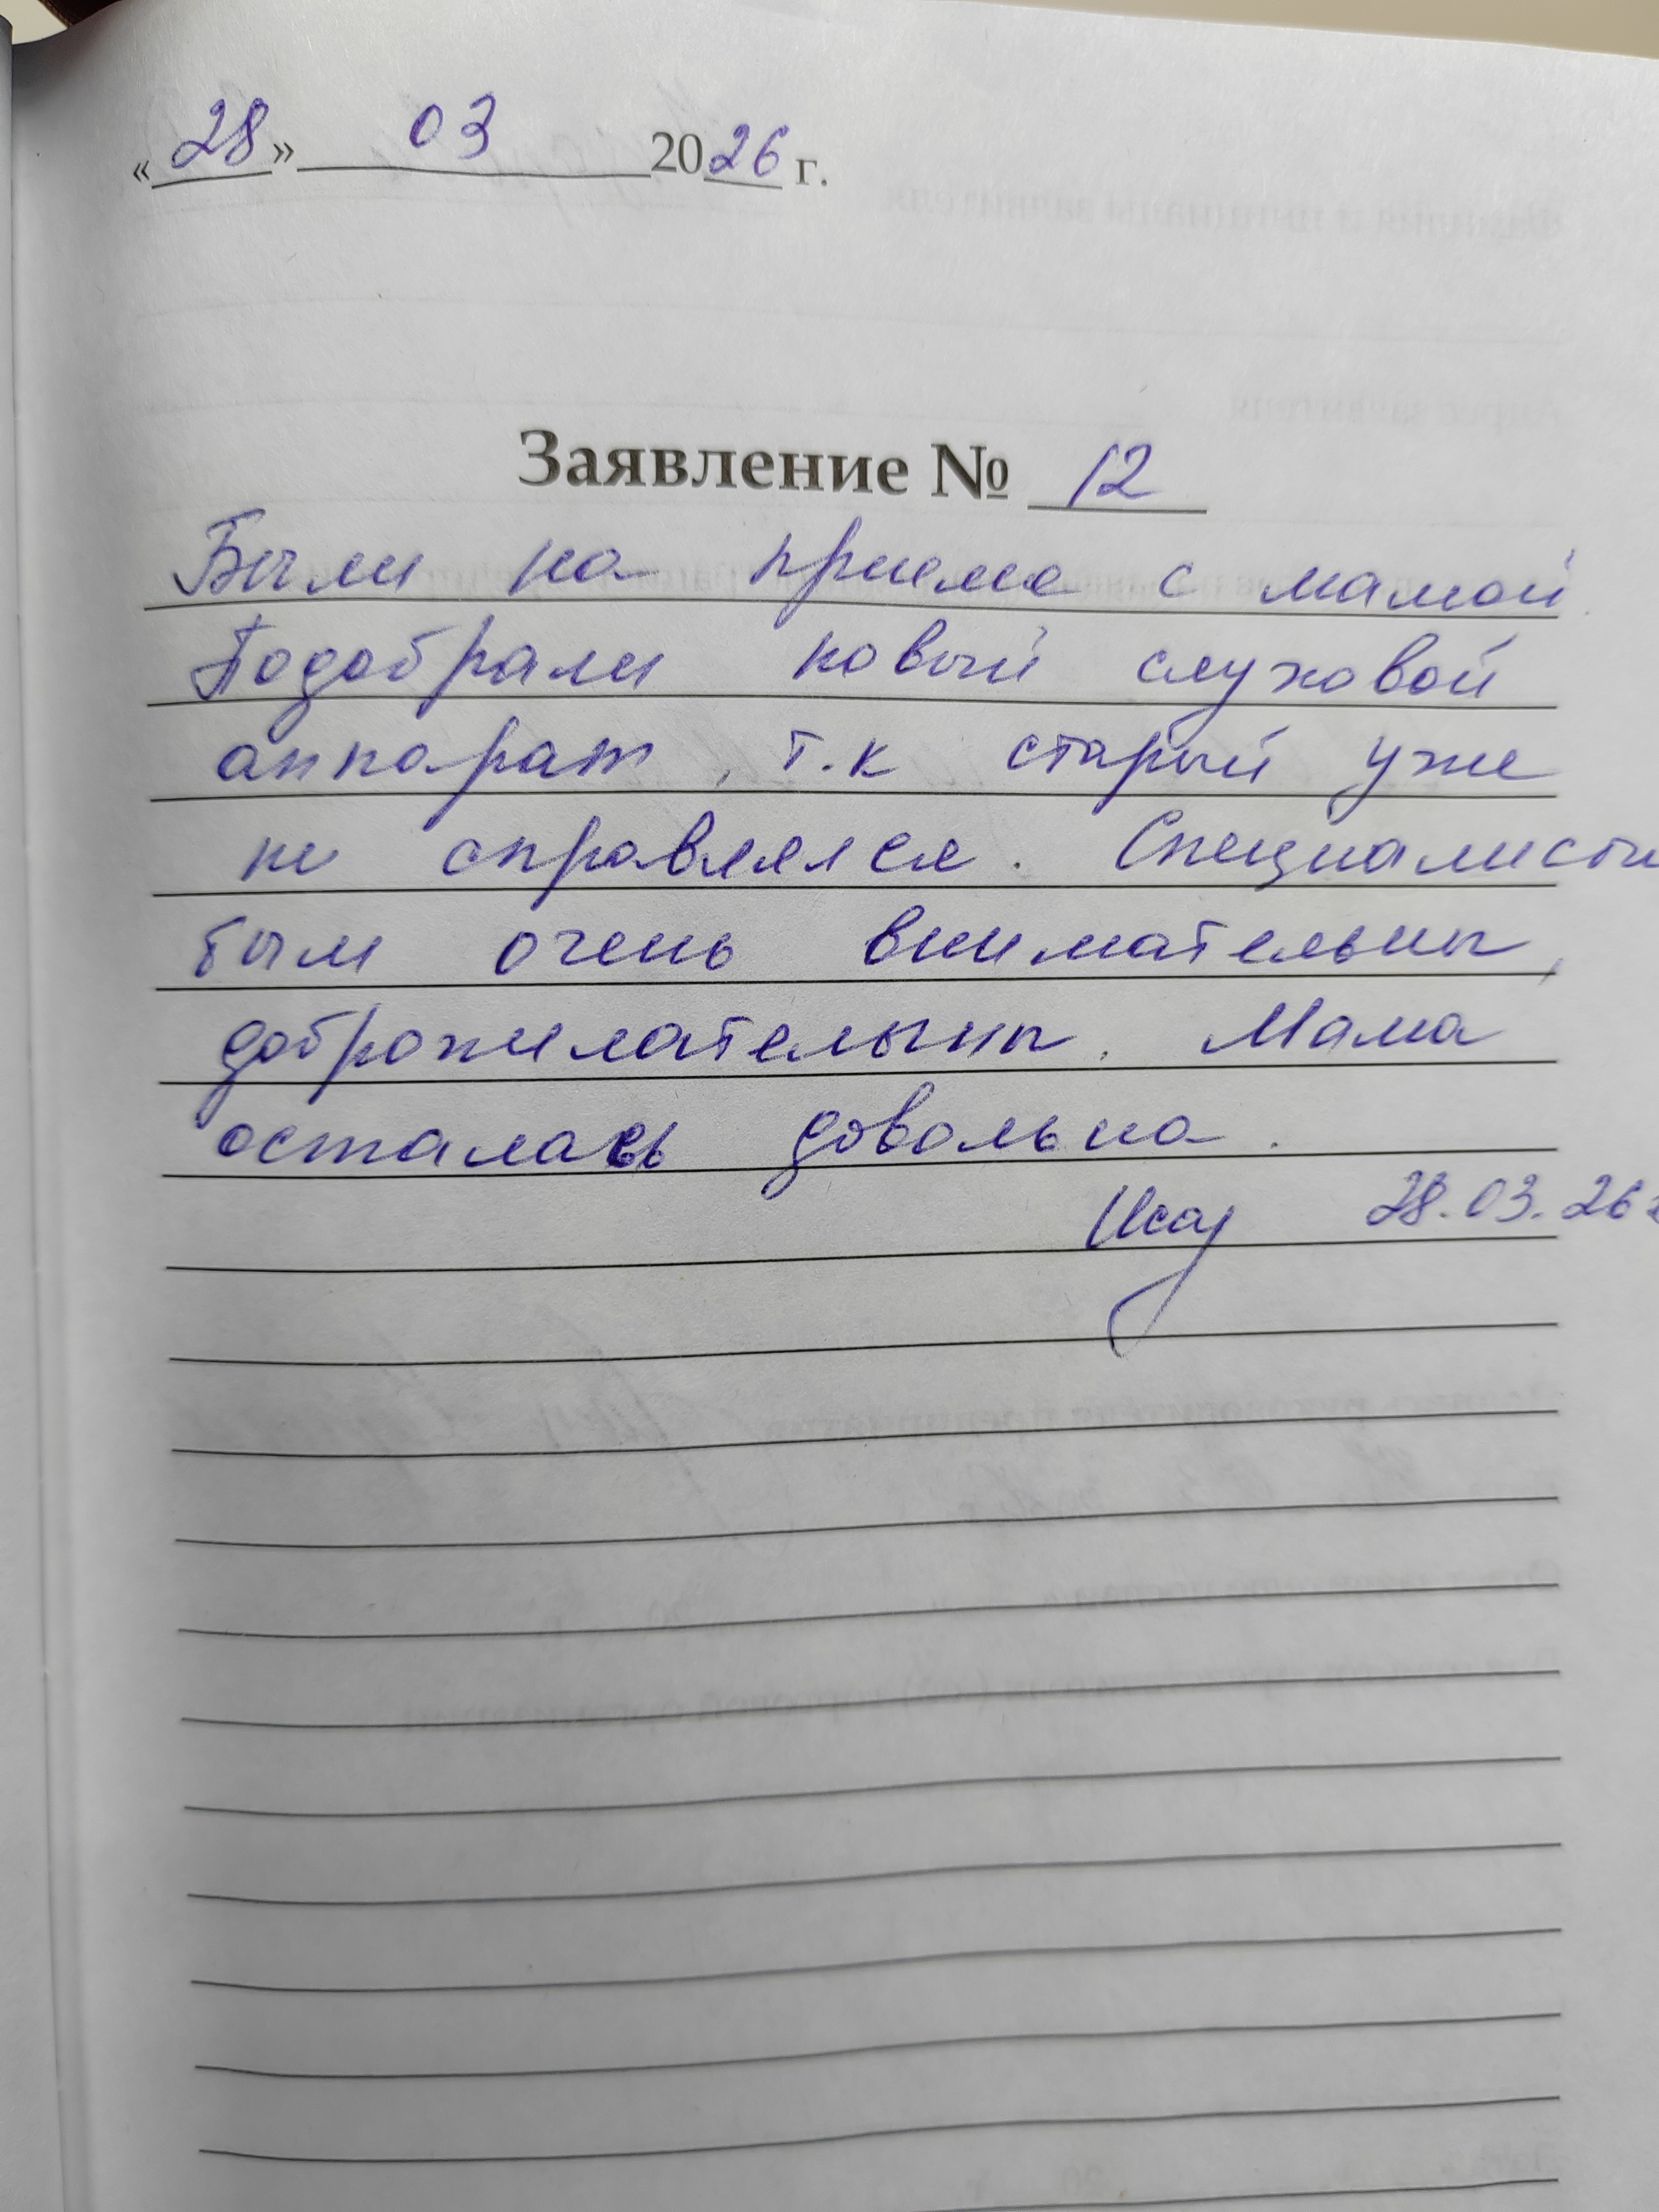 «28» 03 2026 г.
Заявление № 12
Были на приеме с мамой.
Подобрали новый слуховой
аппарат, т.к старый уже
не справлялся. Специалисты
были очень внимательны,
доброжелательны. Мама
осталась довольна.
28.03.26г